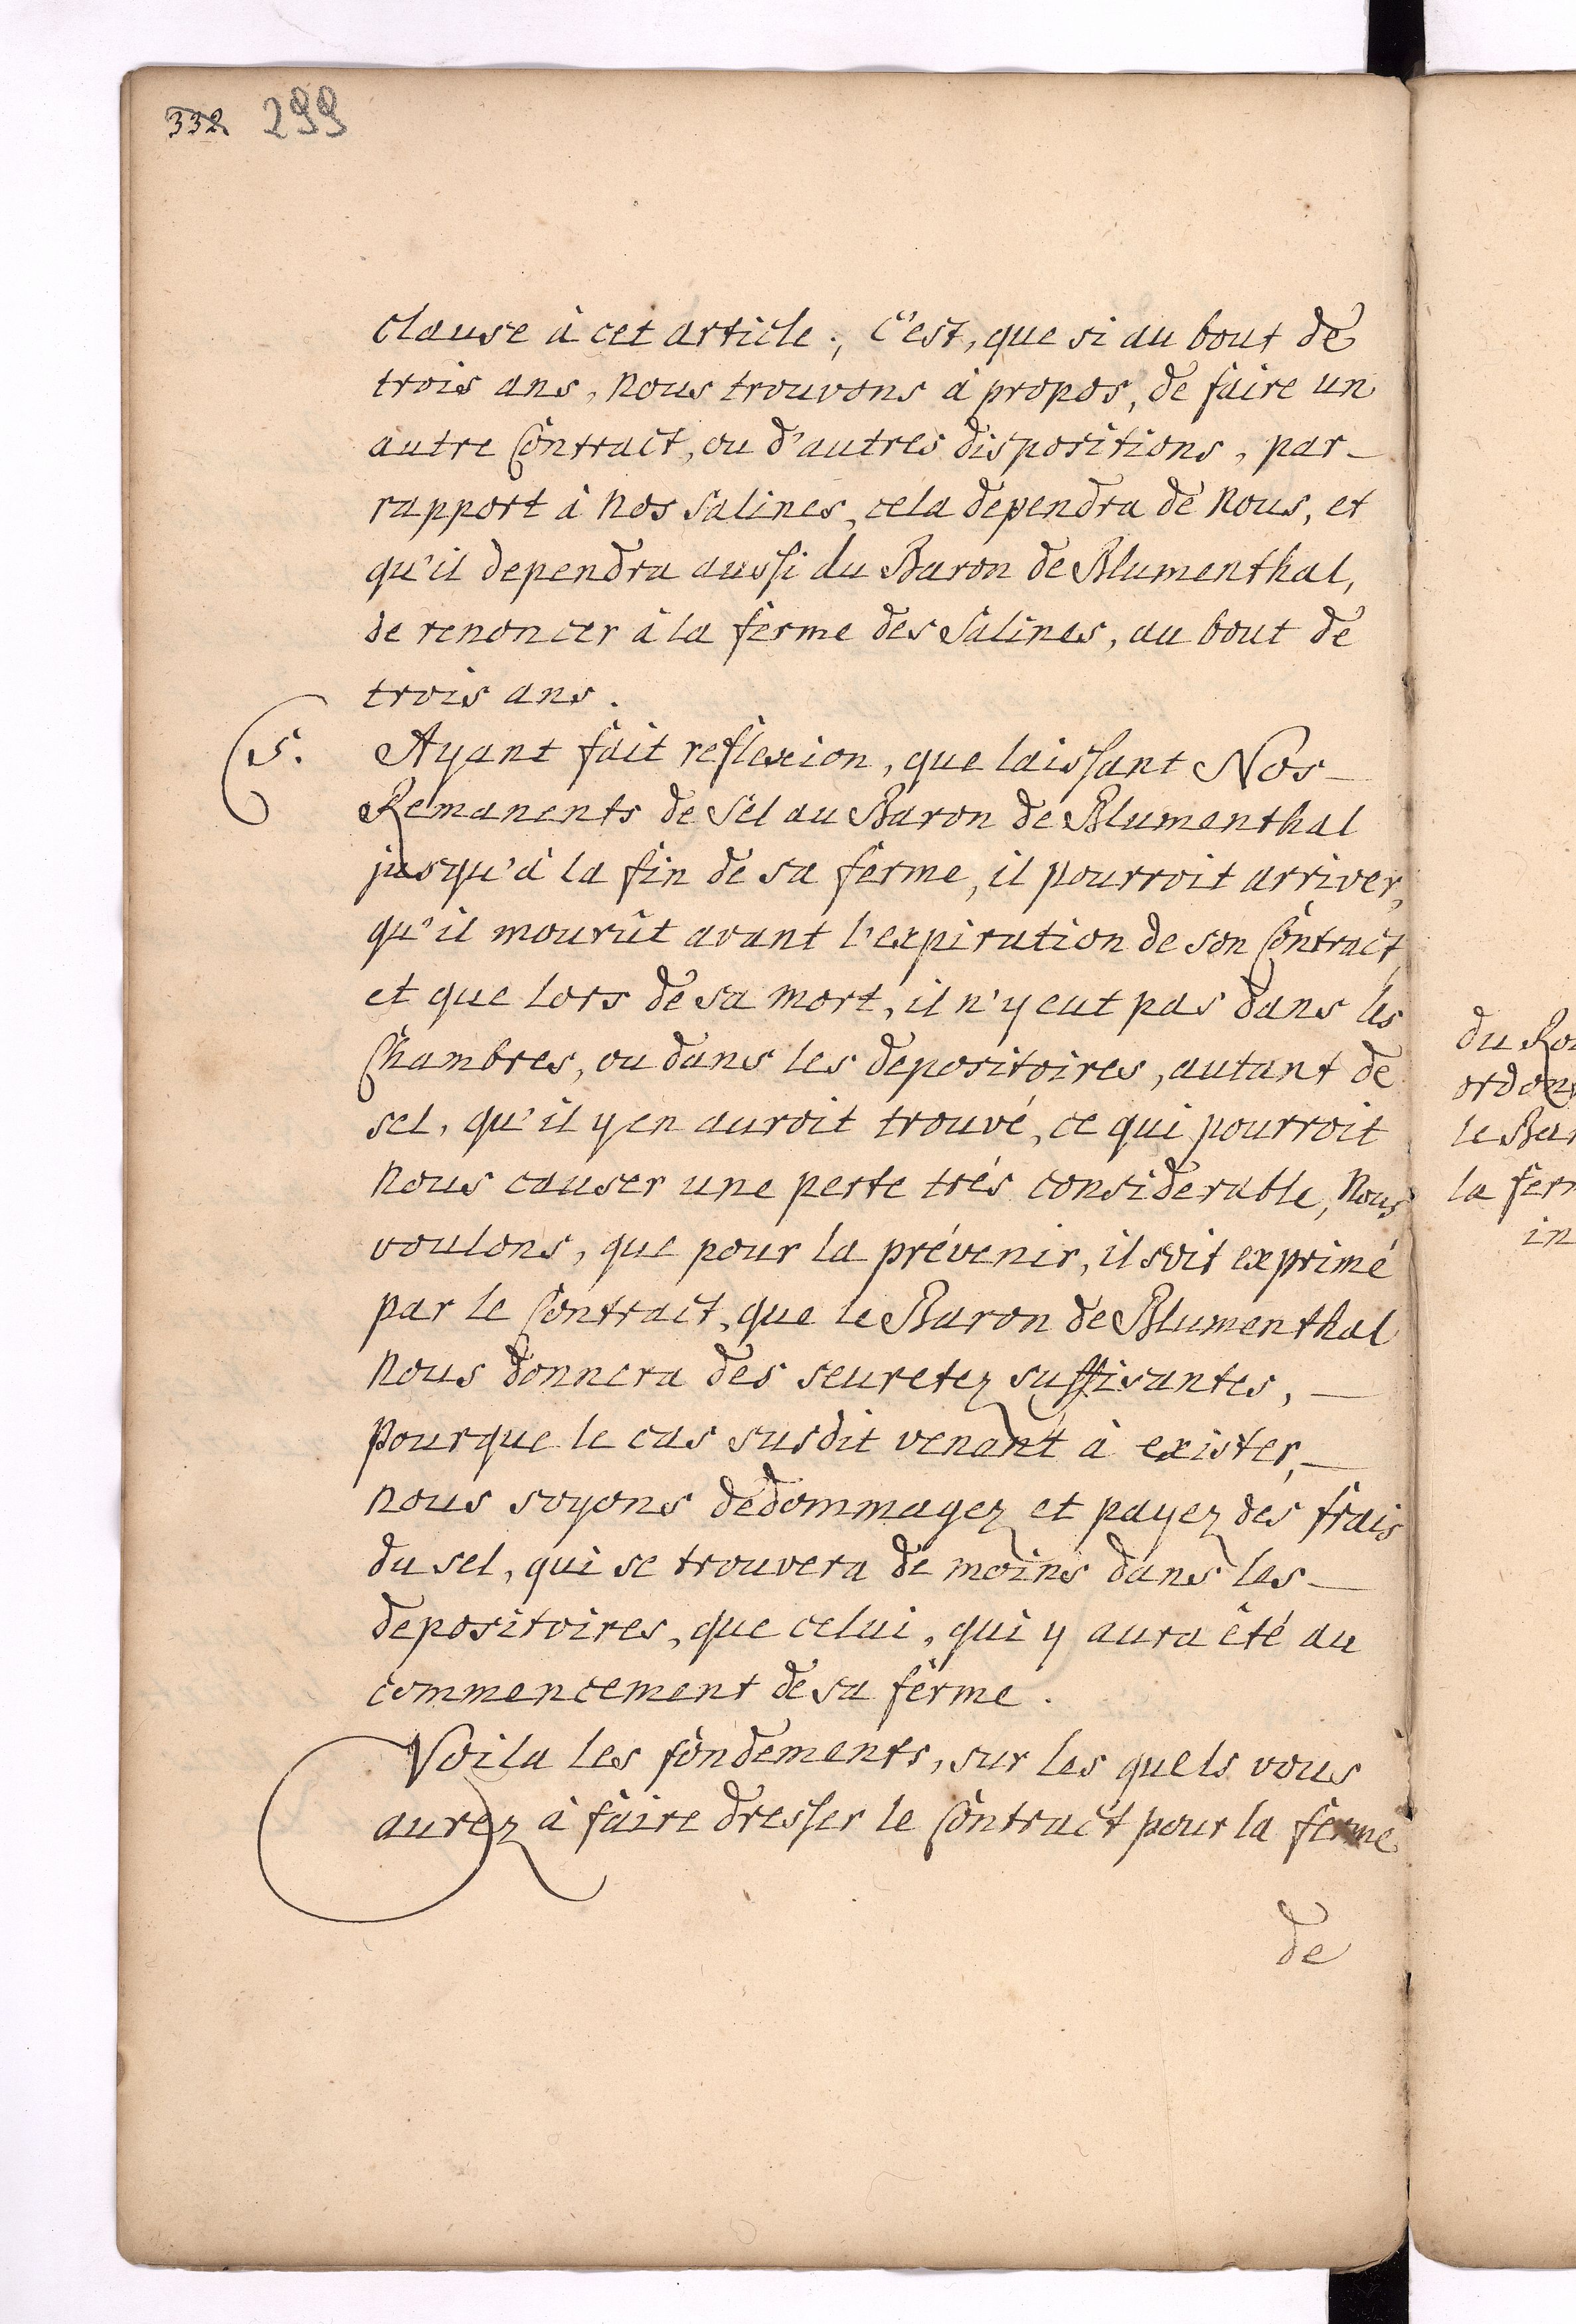 332 299
clause à cet article ; c'est, que si au bout de
trois ans, nous trouvons à propos, de faire un
autre Contract, ou d'autres dispositions, par_
rapport à nos Salines, cela dependra de nous, et
qu'il dependra aussi du Baron de Blumenthal,
de renoncer à la ferme des Salines, au bout de
trois ans.
5. Ayant fait reflexion, que laissant Nos_
Remanents de Sel au Baron de Blumenthal
jusqu'à la fin de sa ferme, il pourroit arriver,
qu'il mourût avant l'expiration de son Contract,
et que lors de sa mort, il n'y eut pas dans les
Chambres, ou dans les depositoires, autant de
sel, qu'il y en auroit trouvé, ce qui pourroit
nous causer une perte trés considerable, Nous
voulons, que pour la prévenir, il soit exprimé
par le Contract, que le Baron de Blumenthal
nous donnera des seuretez suffisantes, _
pourque le cas susdit venant à exister, _
nous soyons dedommagez et payez des frais
du sel, qui se trouvera de moins dans les_
depositoires, que celui, qui y aura été au
commencement de sa ferme.
Voila les fondements, sur les quels vous
aurez à faire dresser le Contract pour la ferme
de
du Roi
ordon
le Bar
la fer
in